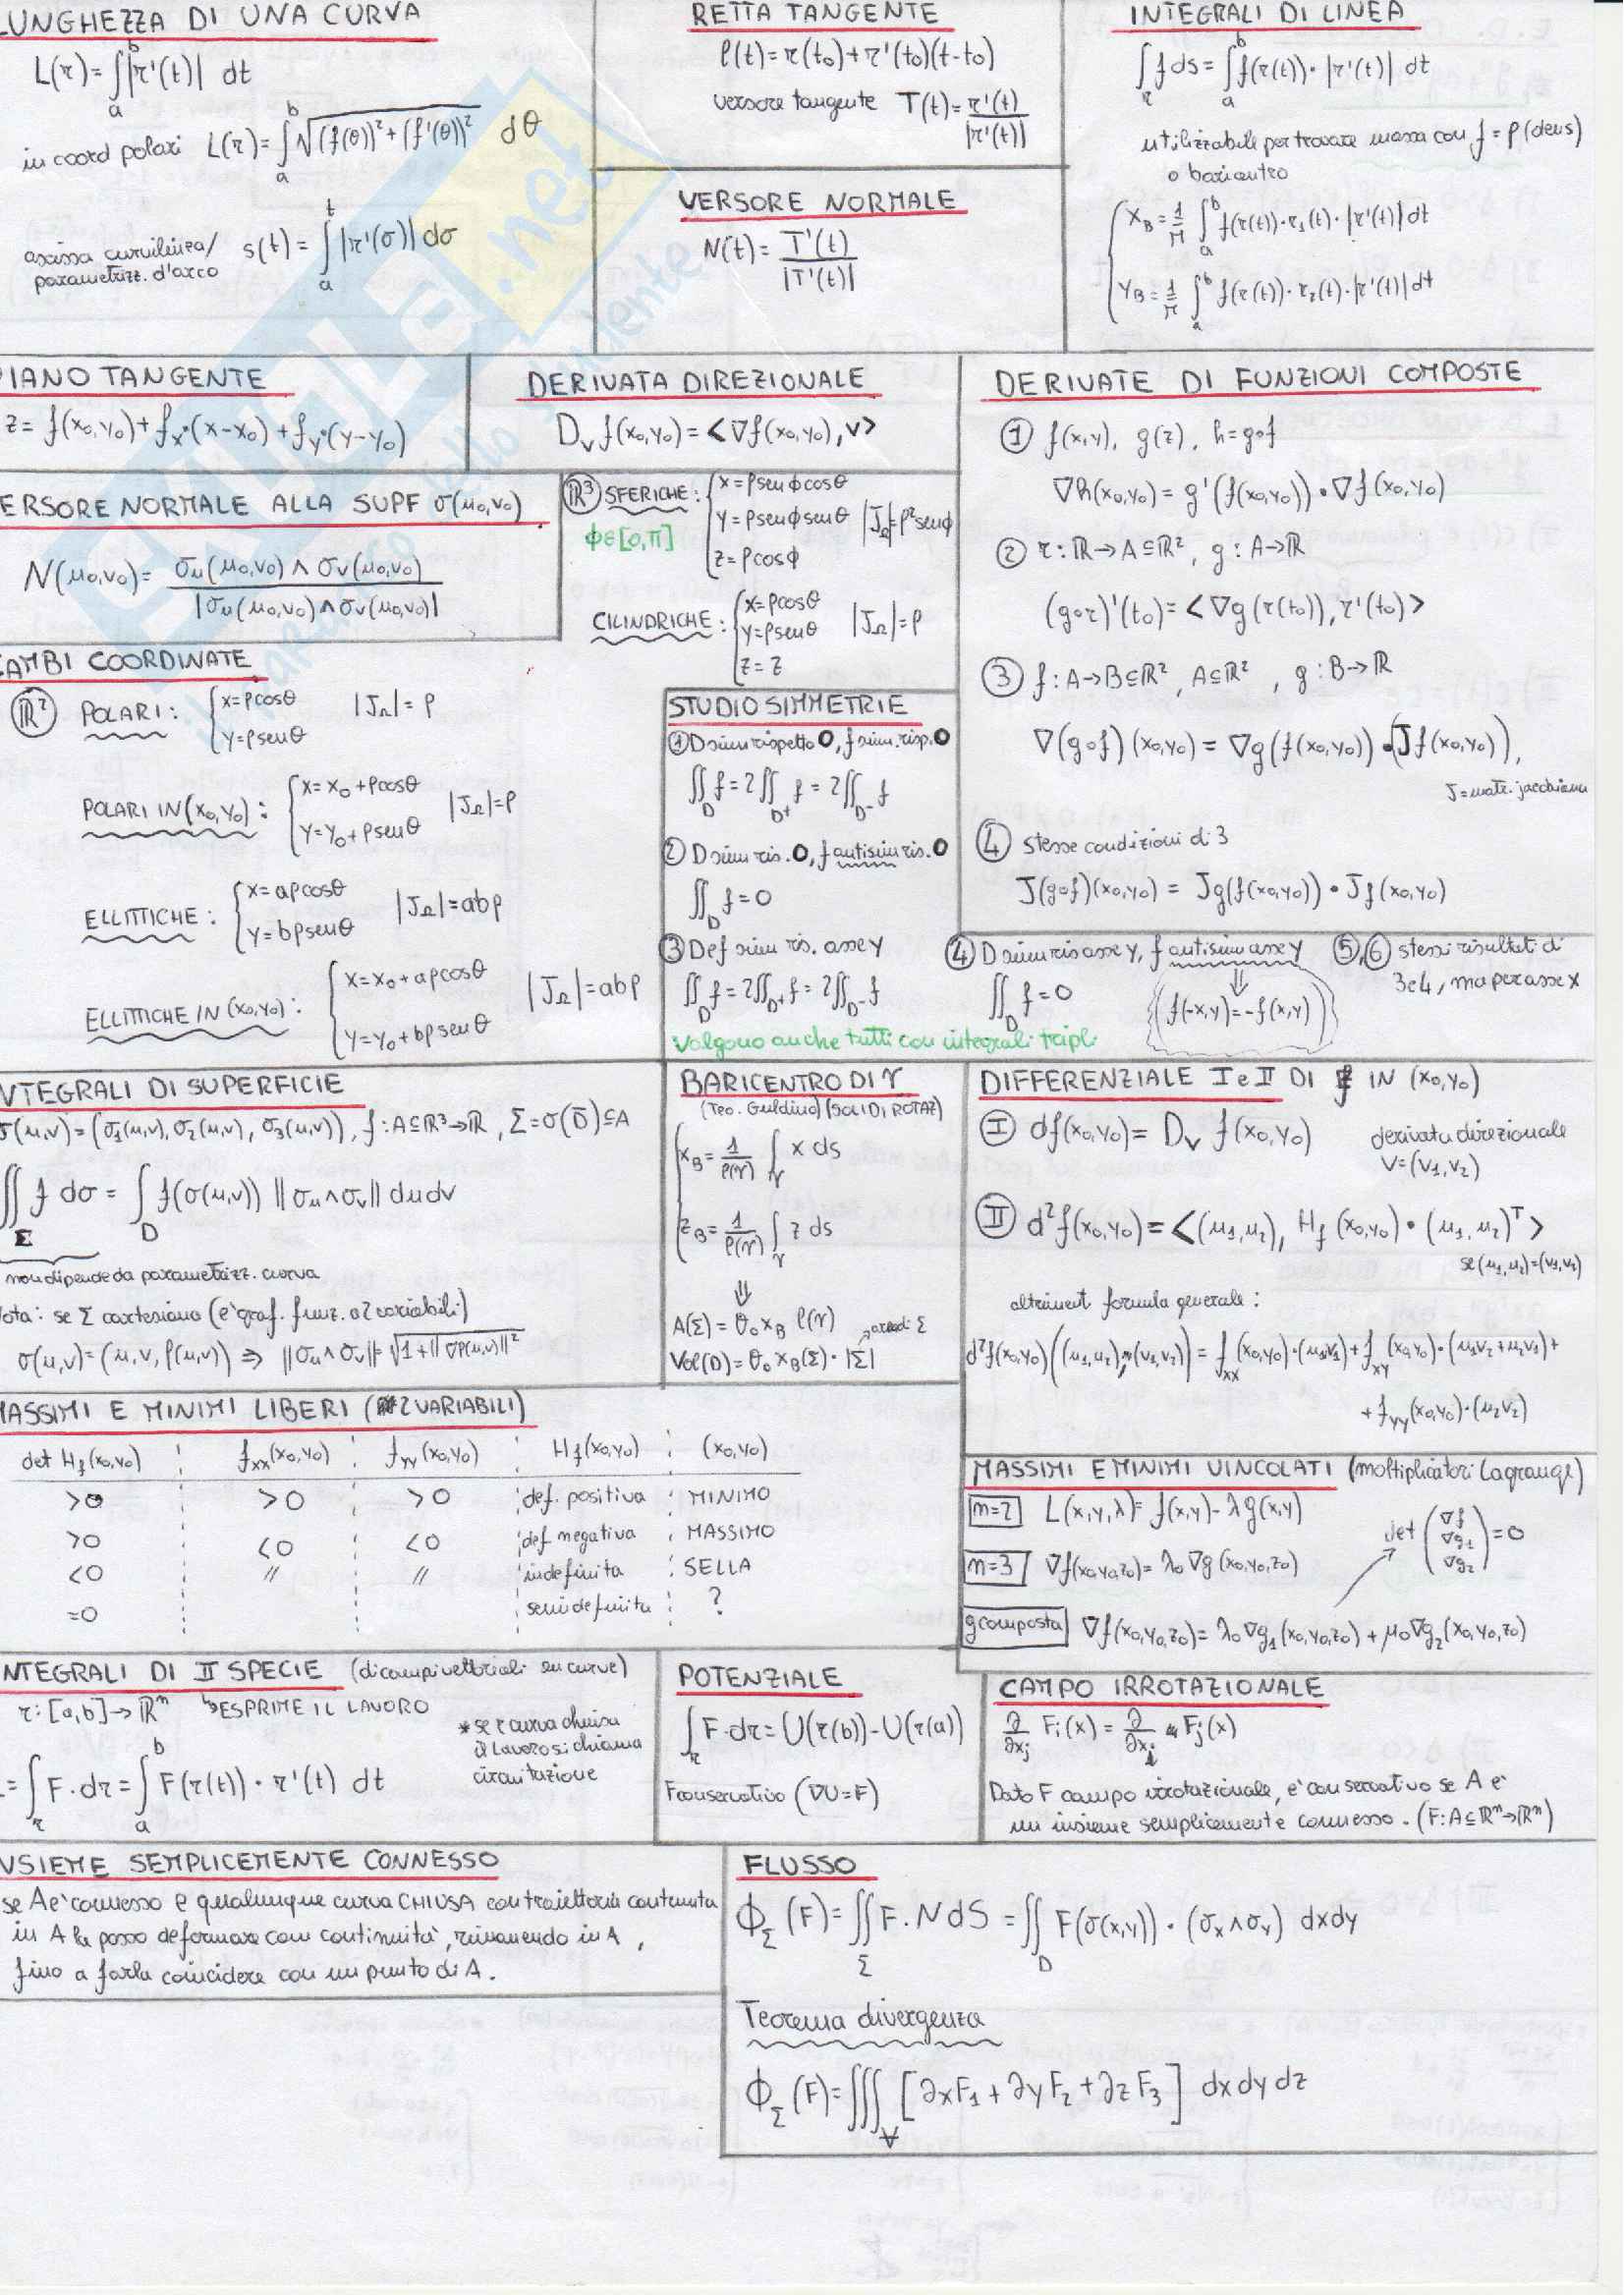 LUNGHEZZA DI UNA CURVA
L(r) = ∫_a^b |r'(t)| dt
in coord polari L(r) = ∫_a^b √((f(θ))² + (f'(θ))²) dθ
ascissa curvilinea/
parametrizz. d'arco s(t) = ∫_a^t |r'(σ)| dσ
RETTA TANGENTE
l(t) = r(t₀) + r'(t₀)(t-t₀)
versore tangente T(t) = r'(t)/|r'(t)|
VERSORE NORMALE
N(t) = T'(t)/|T'(t)|
INTEGRALI DI LINEA
∫_r f ds = ∫_a^b f(r(t)) · |r'(t)| dt
utilizzabile per trovare massa con f = ρ (dens)
o baricentro
X_B = 1/M ∫_a^b f(r(t)) · r₁(t) · |r'(t)| dt
Y_B = 1/M ∫_a^b f(r(t)) · r₂(t) · |r'(t)| dt
PIANO TANGENTE
z = f(x₀,y₀) + f_x · (x-x₀) + f_y · (y-y₀)
DERIVATA DIREZIONALE
D_v f(x₀,y₀) = <∇f(x₀,y₀), v>
DERIVATE DI FUNZIONI COMPOSTE
① f(x,y), g(z), h = g∘f
∇h(x₀,y₀) = g'(f(x₀,y₀)) · ∇f(x₀,y₀)
② r : ℝ → A ⊆ ℝ², g : A → ℝ
(g∘r)'(t₀) = <∇g(r(t₀)), r'(t₀)>
③ f : A → B ⊆ ℝ², A ⊆ ℝ², g : B → ℝ
∇(g∘f)(x₀,y₀) = ∇g(f(x₀,y₀)) · (J f(x₀,y₀)),
J = matr. jacobiana
④ stesse condizioni di 3
J(g∘f)(x₀,y₀) = Jg(f(x₀,y₀)) · Jf(x₀,y₀)
VERSORE NORMALE ALLA SUPF σ(u₀,v₀)
N(u₀,v₀) = σ_u(u₀,v₀) ∧ σ_v(u₀,v₀) / |σ_u(u₀,v₀) ∧ σ_v(u₀,v₀)|
ℝ³ SFERICHE : { x = ρ sen ϕ cos θ
y = ρ sen ϕ sen θ |J_Ω| = ρ² sen ϕ
z = ρ cos ϕ
ϕ ∈ [0, π]
CILINDRICHE : { x = ρ cos θ
y = ρ sen θ |J_Ω| = ρ
z = z
CAMBI COORDINATE
ℝ² POLARI : { x = ρ cos θ
y = ρ sen θ |J_Ω| = ρ
POLARI IN (x₀,y₀) : { x = x₀ + ρ cos θ
y = y₀ + ρ sen θ |J_Ω| = ρ
ELLITTICHE : { x = aρ cos θ
y = bρ sen θ |J_Ω| = abρ
ELLITTICHE IN (x₀,y₀) : { x = x₀ + aρ cos θ
y = y₀ + bρ sen θ |J_Ω| = abρ
STUDIO SIMMETRIE
① D sim rispetto O, f sim. risp. O
∬_D f = 2∬_D+ f = 2∬_D- f
② D sim ris. O, f antisim ris. O
∬_D f = 0
③ D e f sim ris. asse y
∬_D f = 2∬_D+ f = 2∬_D- f
④ D sim ris asse y, f antisim asse y
⇓
∬_D f = 0 (f(-x,y) = -f(x,y))
⑤,⑥ stessi risultati di
3 e 4, ma per asse x
Valgono anche tutti con integrali tripli
INTEGRALI DI SUPERFICIE
σ(u,v) = (σ₁(u,v), σ₂(u,v), σ₃(u,v)), f : A ⊆ ℝ³ → ℝ, Σ = σ(D̄) ⊆ A
∬_Σ f dσ = ∫_D f(σ(u,v)) ||σ_u ∧ σ_v|| du dv
non dipende da parametrizz. curva
Nota : se Σ cartesiana (è graf. funz. a 2 variabili)
σ(u,v) = (u, v, ρ(u,v)) ⇒ ||σ_u ∧ σ_v|| = √(1 + ||∇ρ(u,v)||²)
BARICENTRO DI γ
(Teo. Guldino) (SOLIDI ROTAZ)
x_B = 1/ℓ(γ) ∫_γ x ds
z_B = 1/ℓ(γ) ∫_γ z ds
⇓
A(Σ) = θ₀ x_B ℓ(γ)
→ area di Σ
Vol(D) = θ₀ x_B(Σ) · |Σ|
DIFFERENZIALE I e II DI f IN (x₀,y₀)
Ⓘ df(x₀,y₀) = D_v f(x₀,y₀) derivata direzionale
v = (v₁,v₂)
Ⓘ︎Ⓘ d²f(x₀,y₀) = <(u₁,u₂), H_f(x₀,y₀) · (u₁,u₂)^T>
se (u₁,u₂) = (v₁,v₂)
altriment formula generale :
d²f(x₀,y₀)((u₁,u₂),(v₁,v₂)) = f_xx(x₀,y₀) · (u₁v₁) + f_xy(x₀,y₀) · (u₁v₂ + u₂v₁) +
+ f_yy(x₀,y₀) · (u₂v₂)
MASSIMI E MINIMI LIBERI (2 VARIABILI)
det H_f(x₀,y₀) f_xx(x₀,y₀) f_yy(x₀,y₀) H_f(x₀,y₀) (x₀,y₀)
>0 >0 >0 def. positiva MINIMO
>0 <0 <0 def negativa MASSIMO
<0 // // indefinita SELLA
=0 semidefinita ?
MASSIMI E MINIMI VINCOLATI (moltiplicatori Lagrange)
m=2 L(x,y,λ) = f(x,y) - λg(x,y)
det (∇f ∇g₁ ∇g₂) = 0
m=3 ∇f(x₀,y₀,z₀) = λ₀∇g(x₀,y₀,z₀)
g composta ∇f(x₀,y₀,z₀) = λ₀∇g₁(x₀,y₀,z₀) + μ₀∇g₂(x₀,y₀,z₀)
INTEGRALI DI II SPECIE (di campi vettoriali su curve)
r : [a,b] → ℝⁿ ↳ ESPRIME IL LAVORO
* se r curva chiusa
il lavoro si chiama
circuitazione
L = ∫_r F · dr = ∫_a^b F(r(t)) · r'(t) dt
POTENZIALE
∫_r F · dr = U(r(b)) - U(r(a))
F conservativo (∇U = F)
CAMPO IRROTAZIONALE
∂/∂x_j F_i(x) = ∂/∂x_i F_j(x)
Dato F campo irrotazionale, è conservativo se A è
un insieme semplicemente connesso. (F : A ⊆ ℝⁿ → ℝⁿ)
INSIEME SEMPLICEMENTE CONNESSO
se A è connesso e qualunque curva CHIUSA con traiettoria contenuta
in A la posso deformare con continuità, rimanendo in A,
fino a farla coincidere con un punto di A.
FLUSSO
Φ_Σ(F) = ∬_Σ F · N dS = ∬_D F(σ(x,y)) · (σ_x ∧ σ_y) dxdy
Teorema divergenza
Φ_Σ(F) = ∭_V [∂xF₁ + ∂yF₂ + ∂zF₃] dx dy dz